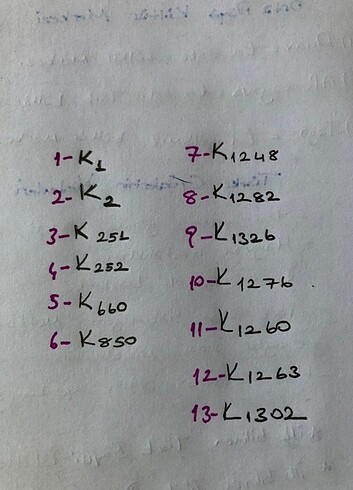 1- K1
2- K2
3- K 251
4- K252
5- K660
6- K850
7- K1248
8- K1282
9- K1326
10- K1276
11- K1260
12- K1263
13- K1302